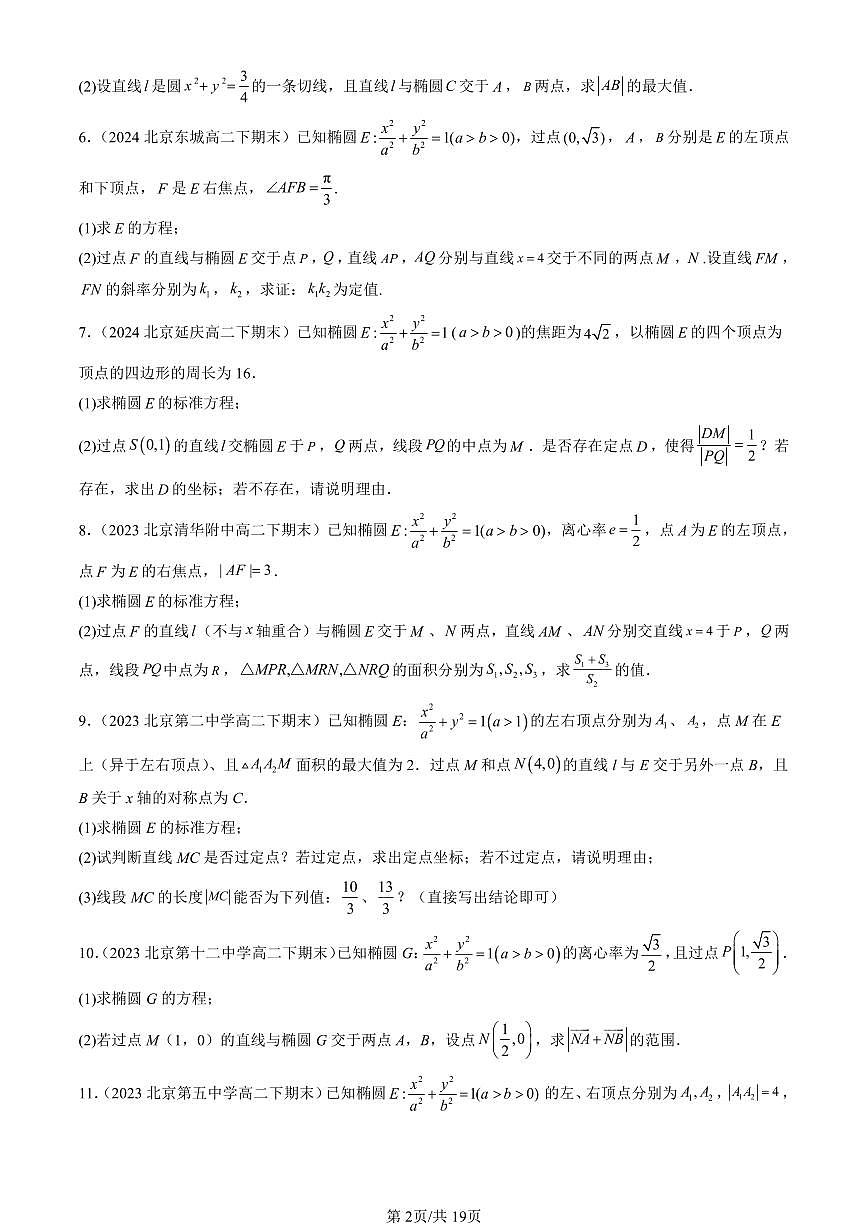 (2)设直线l是圆x²+y²=3/4的一条切线，且直线l与椭圆C交于A，B两点，求|AB|的最大值．
6.（2024北京东城高二下期末）已知椭圆E:x²/a²+y²/b²=1(a>b>0)，过点(0,√3)，A，B分别是E的左顶点
和下顶点，F是E右焦点，∠AFB=π/3.
(1)求E的方程；
(2)过点F的直线与椭圆E交于点P，Q，直线AP，AQ分别与直线x=4交于不同的两点M，N.设直线FM，
FN的斜率分别为k₁，k₂，求证：k₁k₂为定值.
7.（2024北京延庆高二下期末）已知椭圆E:x²/a²+y²/b²=1（a>b>0)的焦距为4√2，以椭圆E的四个顶点为
顶点的四边形的周长为16．
(1)求椭圆E的标准方程；
(2)过点S(0,1)的直线l交椭圆E于P，Q两点，线段PQ的中点为M．是否存在定点D，使得|DM|/|PQ|=1/2？若
存在，求出D的坐标；若不存在，请说明理由．
8.（2023北京清华附中高二下期末）已知椭圆E:x²/a²+y²/b²=1(a>b>0)，离心率e=1/2，点A为E的左顶点，
点F为E的右焦点，|AF|=3．
(1)求椭圆E的标准方程；
(2)过点F的直线l（不与x轴重合）与椭圆E交于M、N两点，直线AM、AN分别交直线x=4于P，Q两
点，线段PQ中点为R，△MPR,△MRN,△NRQ的面积分别为S₁,S₂,S₃，求(S₁+S₃)/S₂的值．
9.（2023北京第二中学高二下期末）已知椭圆E：x²/a²+y²=1(a>1)的左右顶点分别为A₁、A₂，点M在E
上（异于左右顶点）、且△A₁A₂M面积的最大值为2．过点M和点N(4,0)的直线l与E交于另外一点B，且
B关于x轴的对称点为C．
(1)求椭圆E的标准方程；
(2)试判断直线MC是否过定点？若过定点，求出定点坐标；若不过定点，请说明理由；
(3)线段MC的长度|MC|能否为下列值：10/3、13/3？（直接写出结论即可）
10.（2023北京第十二中学高二下期末）已知椭圆G:x²/a²+y²/b²=1(a>b>0)的离心率为√3/2，且过点P(1,√3/2)．
(1)求椭圆G的方程；
(2)若过点M（1，0）的直线与椭圆G交于两点A，B，设点N(1/2,0)，求|NA+NB|的范围．
11.（2023北京第五中学高二下期末）已知椭圆E:x²/a²+y²/b²=1(a>b>0) 的左、右顶点分别为A₁,A₂，|A₁A₂|=4，
第2页/共19页